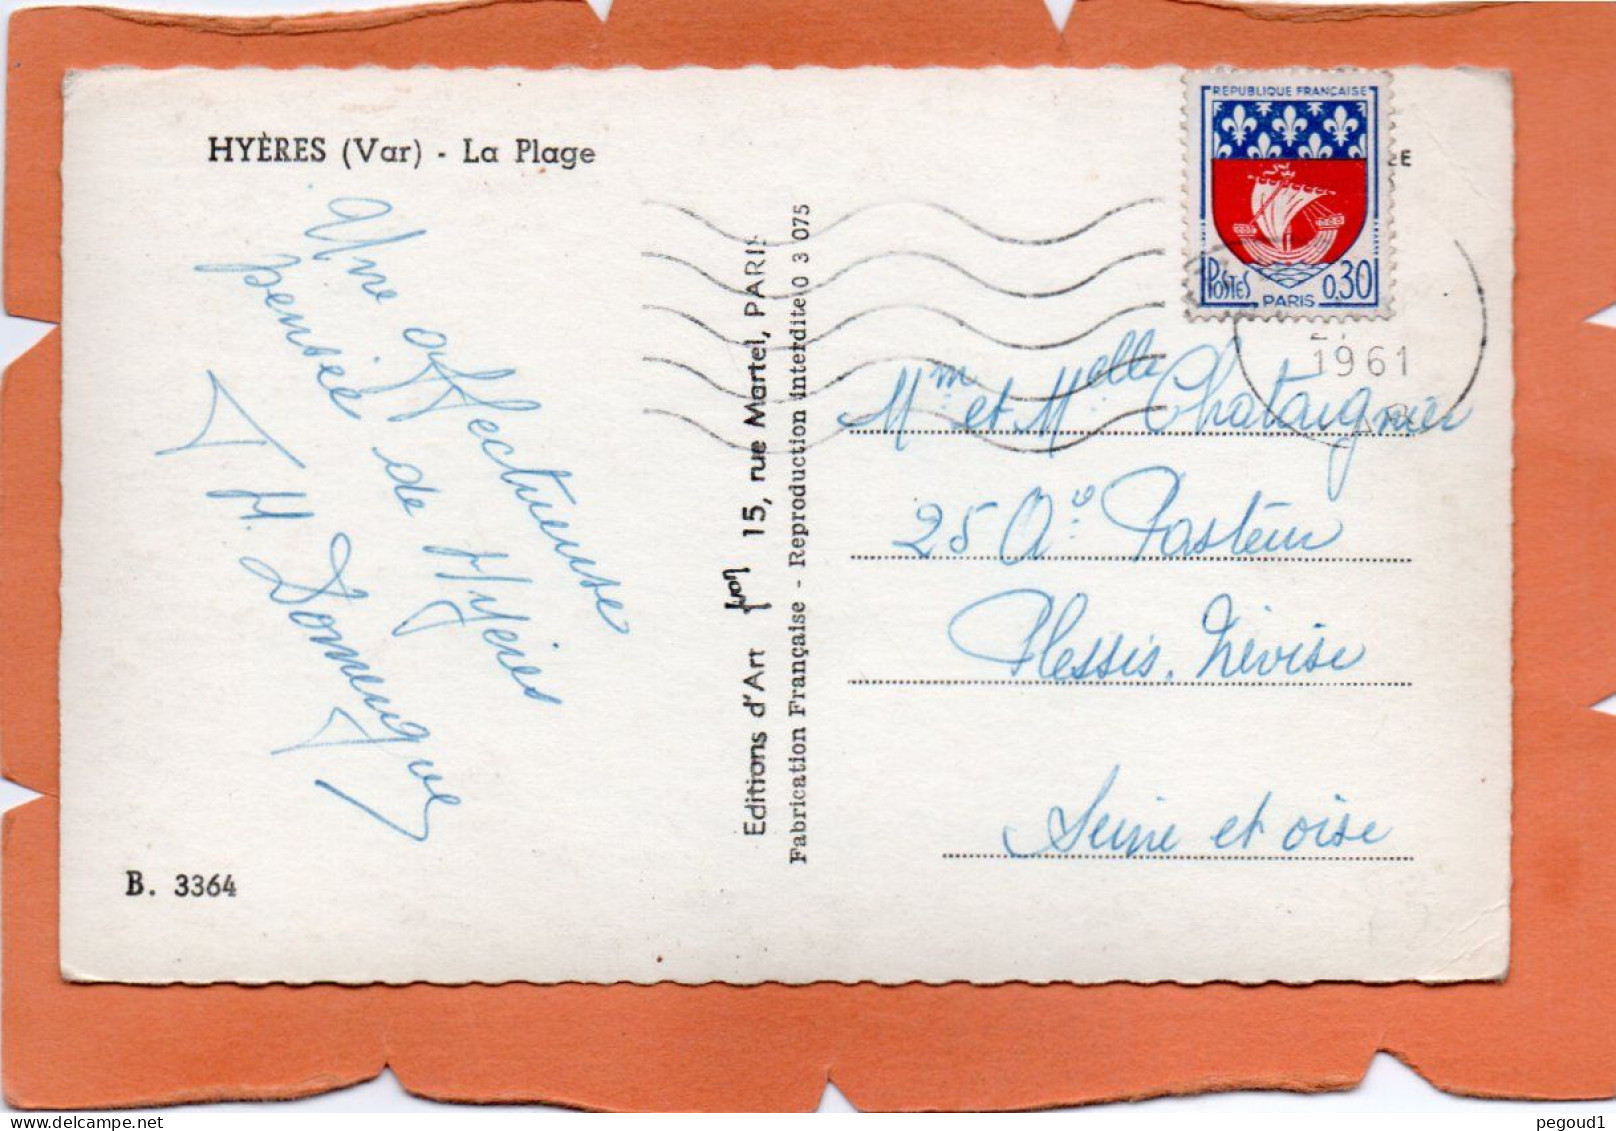 HYÈRES (Var) - La Plage
Une affectueuse
pensée de Hyères
H. Domengue
B. 3364
Editions d'Art yvon 15, rue Martel, PARIS
Fabrication Française - Reproduction interdite 0 3 075
REPUBLIQUE FRANÇAISE
POSTES
PARIS
0,30
1961
Mm et Melle Chataignier
25 Ae Pasteur
Plessis. Trévise
Seine et oise
pegoud1